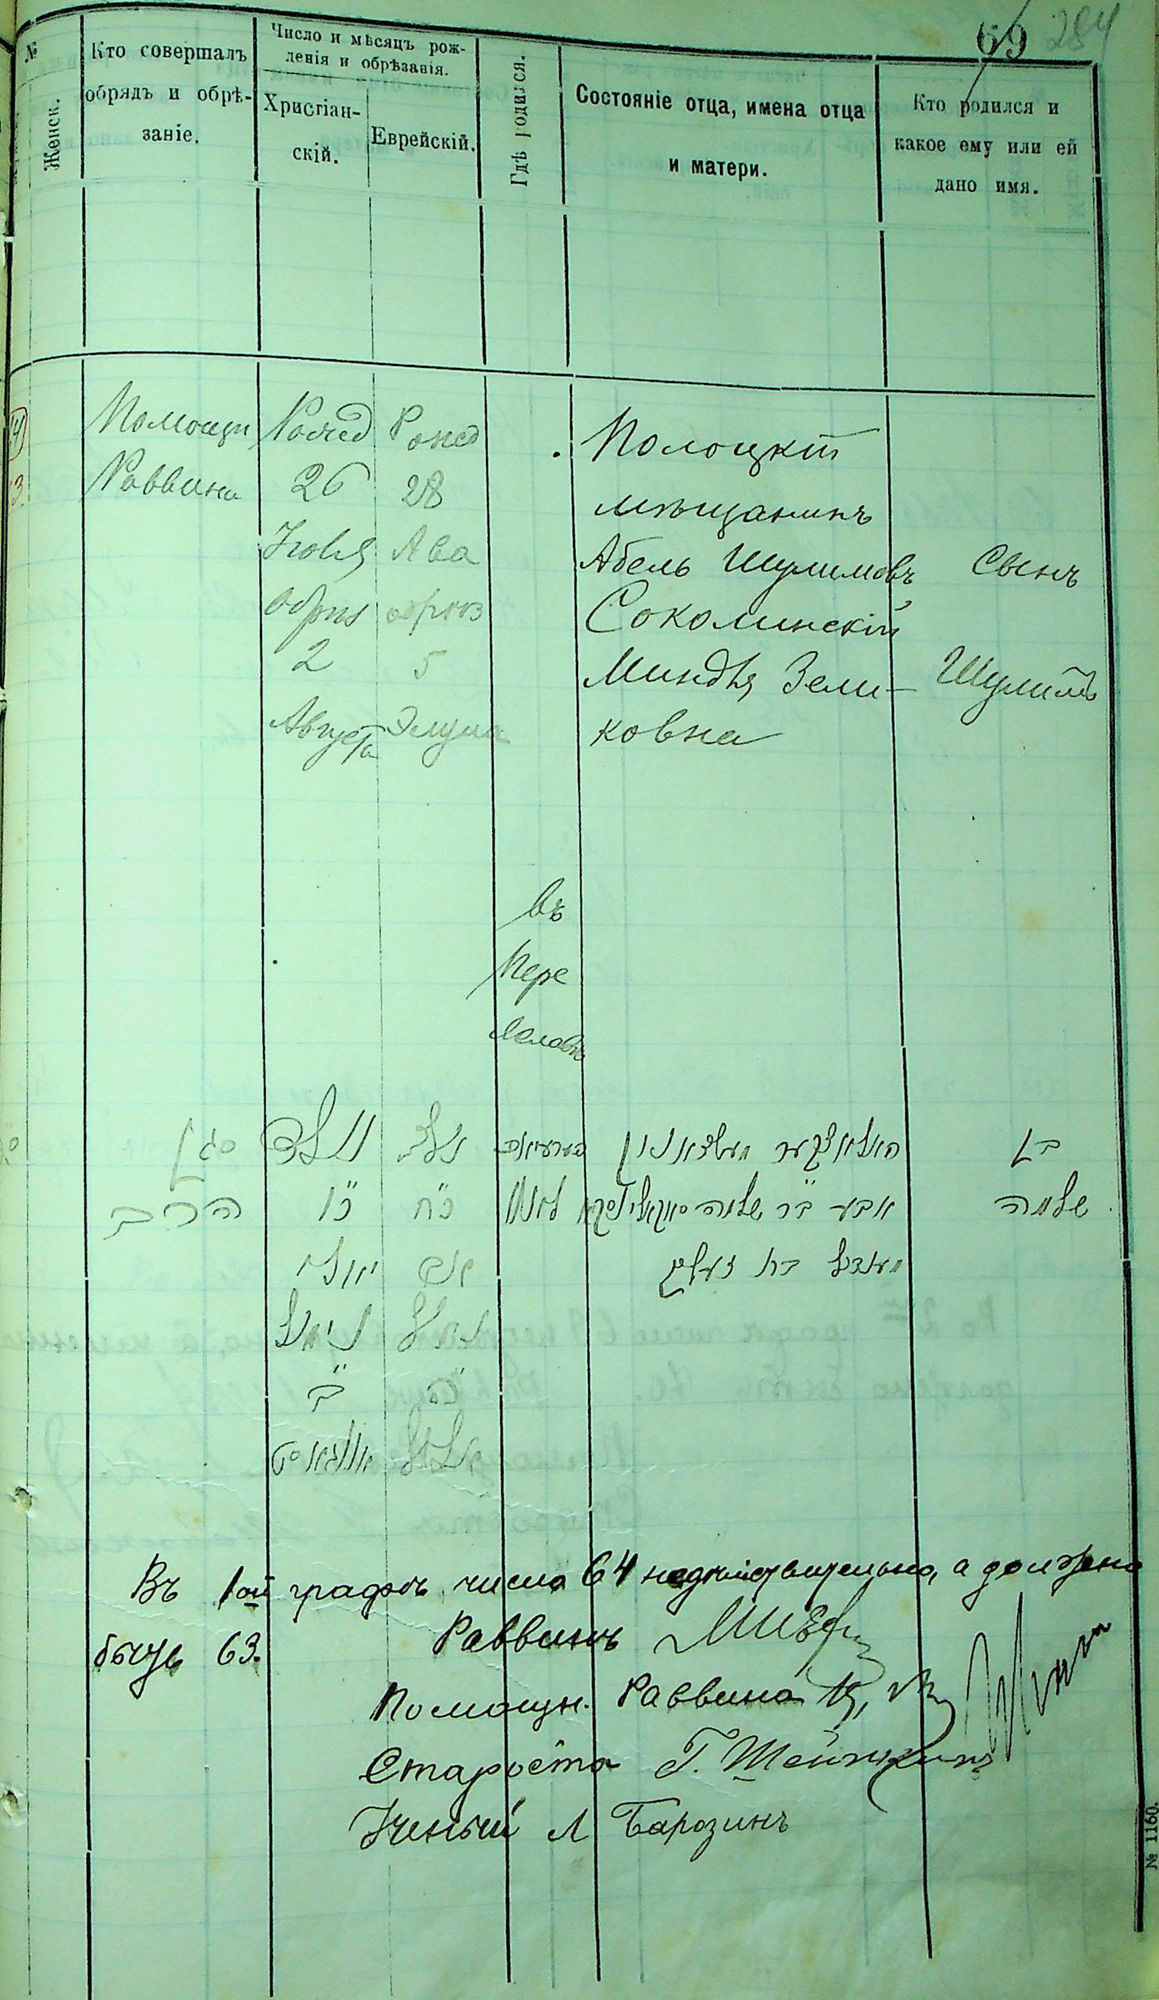 69 284
№
Женск.
Кто совершалъ
обрядъ и обрѣ-
заніе.
Число и мѣсяцъ рож-
денія и обрѣзанія.
Христіан-
скій.
Еврейскій.
Гдѣ родился.
Состояніе отца, имена отца
и матери.
Кто родился и
какое ему или ей
дано имя.
Помощн
Раввина
26
Іюля
2
Августа
28
Ава
5
Элула
въ
Пере
яславѣ
Полоцкій
мѣщанинъ
Абель Шулимовъ
Соколинскій
Миндля Зели-
ковна
Сынъ
Шулимъ
סגן
הרב
נולד
כ״ו
יולי
ב״
אויגוסט
נולד
כ״ח
אב
ה״
אלול
שלמה
בן
Въ 1ой графѣ число 64 недѣйствительно, а должно
быть 63.
Раввинъ
Помощн. Раввина
Староста Г.
Ученый Л Барозинъ
№ 1160.